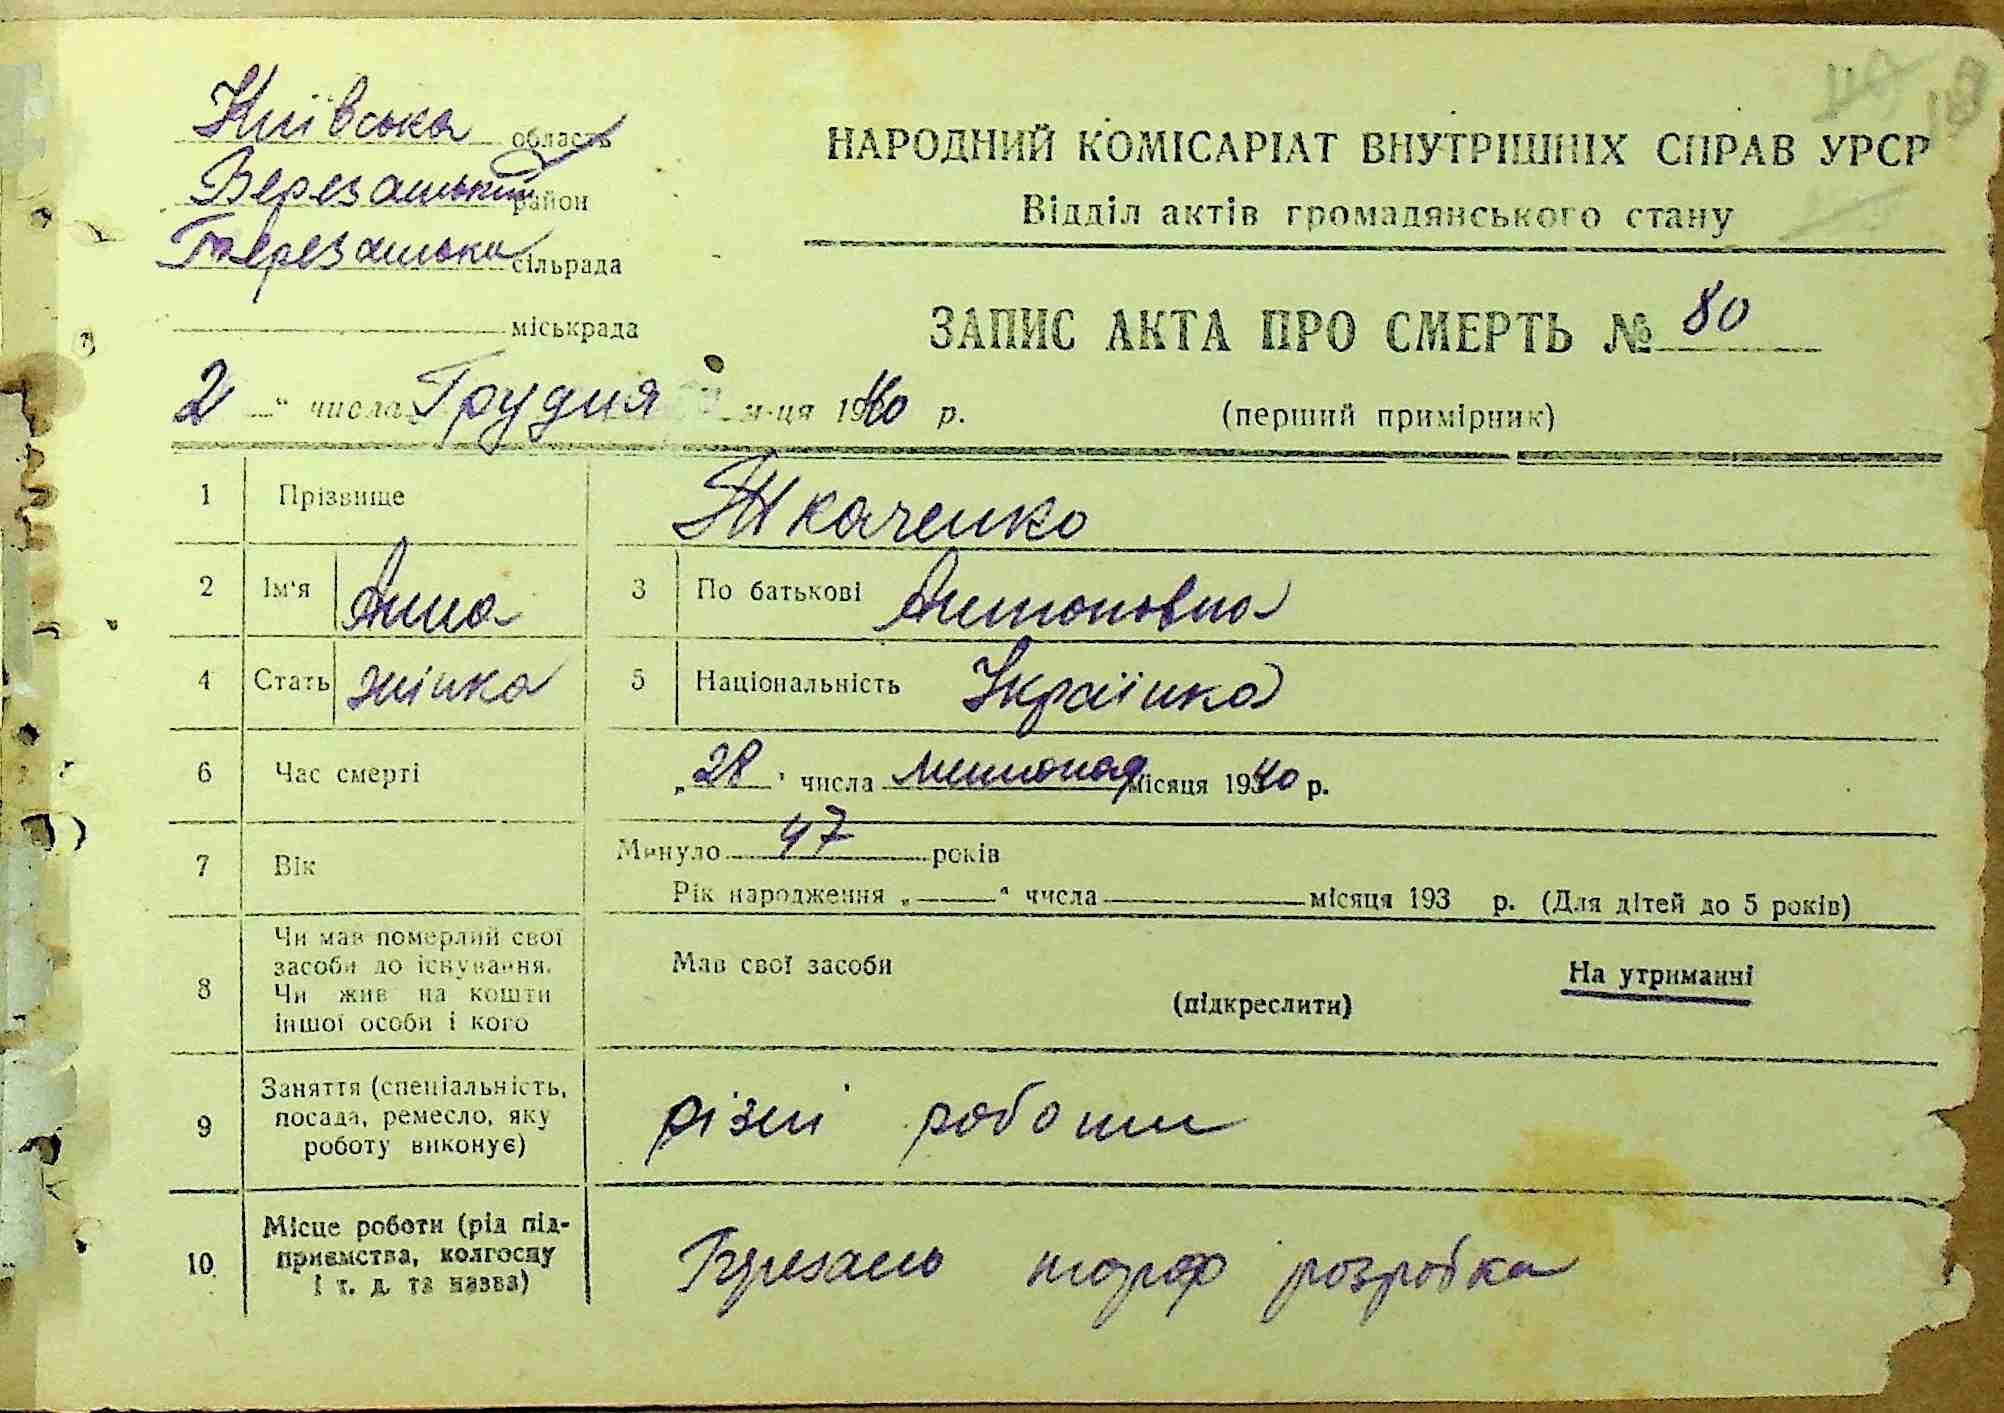 Київська область
Березанський район
Березанська сільрада
міськрада
НАРОДНИЙ КОМІСАРІАТ ВНУТРІШНІХ СПРАВ УРСР
Відділ актів громадянського стану
ЗАПИС АКТА ПРО СМЕРТЬ № 80
(перший примірник)
2 " числа Грудня м-ця 1940 р.
1 Прізвище Ткаченко
2 Ім'я Анна 3 По батькові Антоновна
4 Стать жінка 5 Національність Українка
6 Час смерті „28" числа листопад місяця 1940 р.
7 Вік Минуло 47 років
Рік народження „ " числа місяця 193 р. (Для дітей до 5 років)
8 Чи мав померлий свої засоби до існування. Чи жив на кошти іншої особи і кого
Мав свої засоби (підкреслити) На утриманні
9 Заняття (спеціальність, посада, ремесло, яку роботу виконує) різні роботи
10 Місце роботи (рід підприємства, колгоспу і т. д. та назва) Березань торф розробка